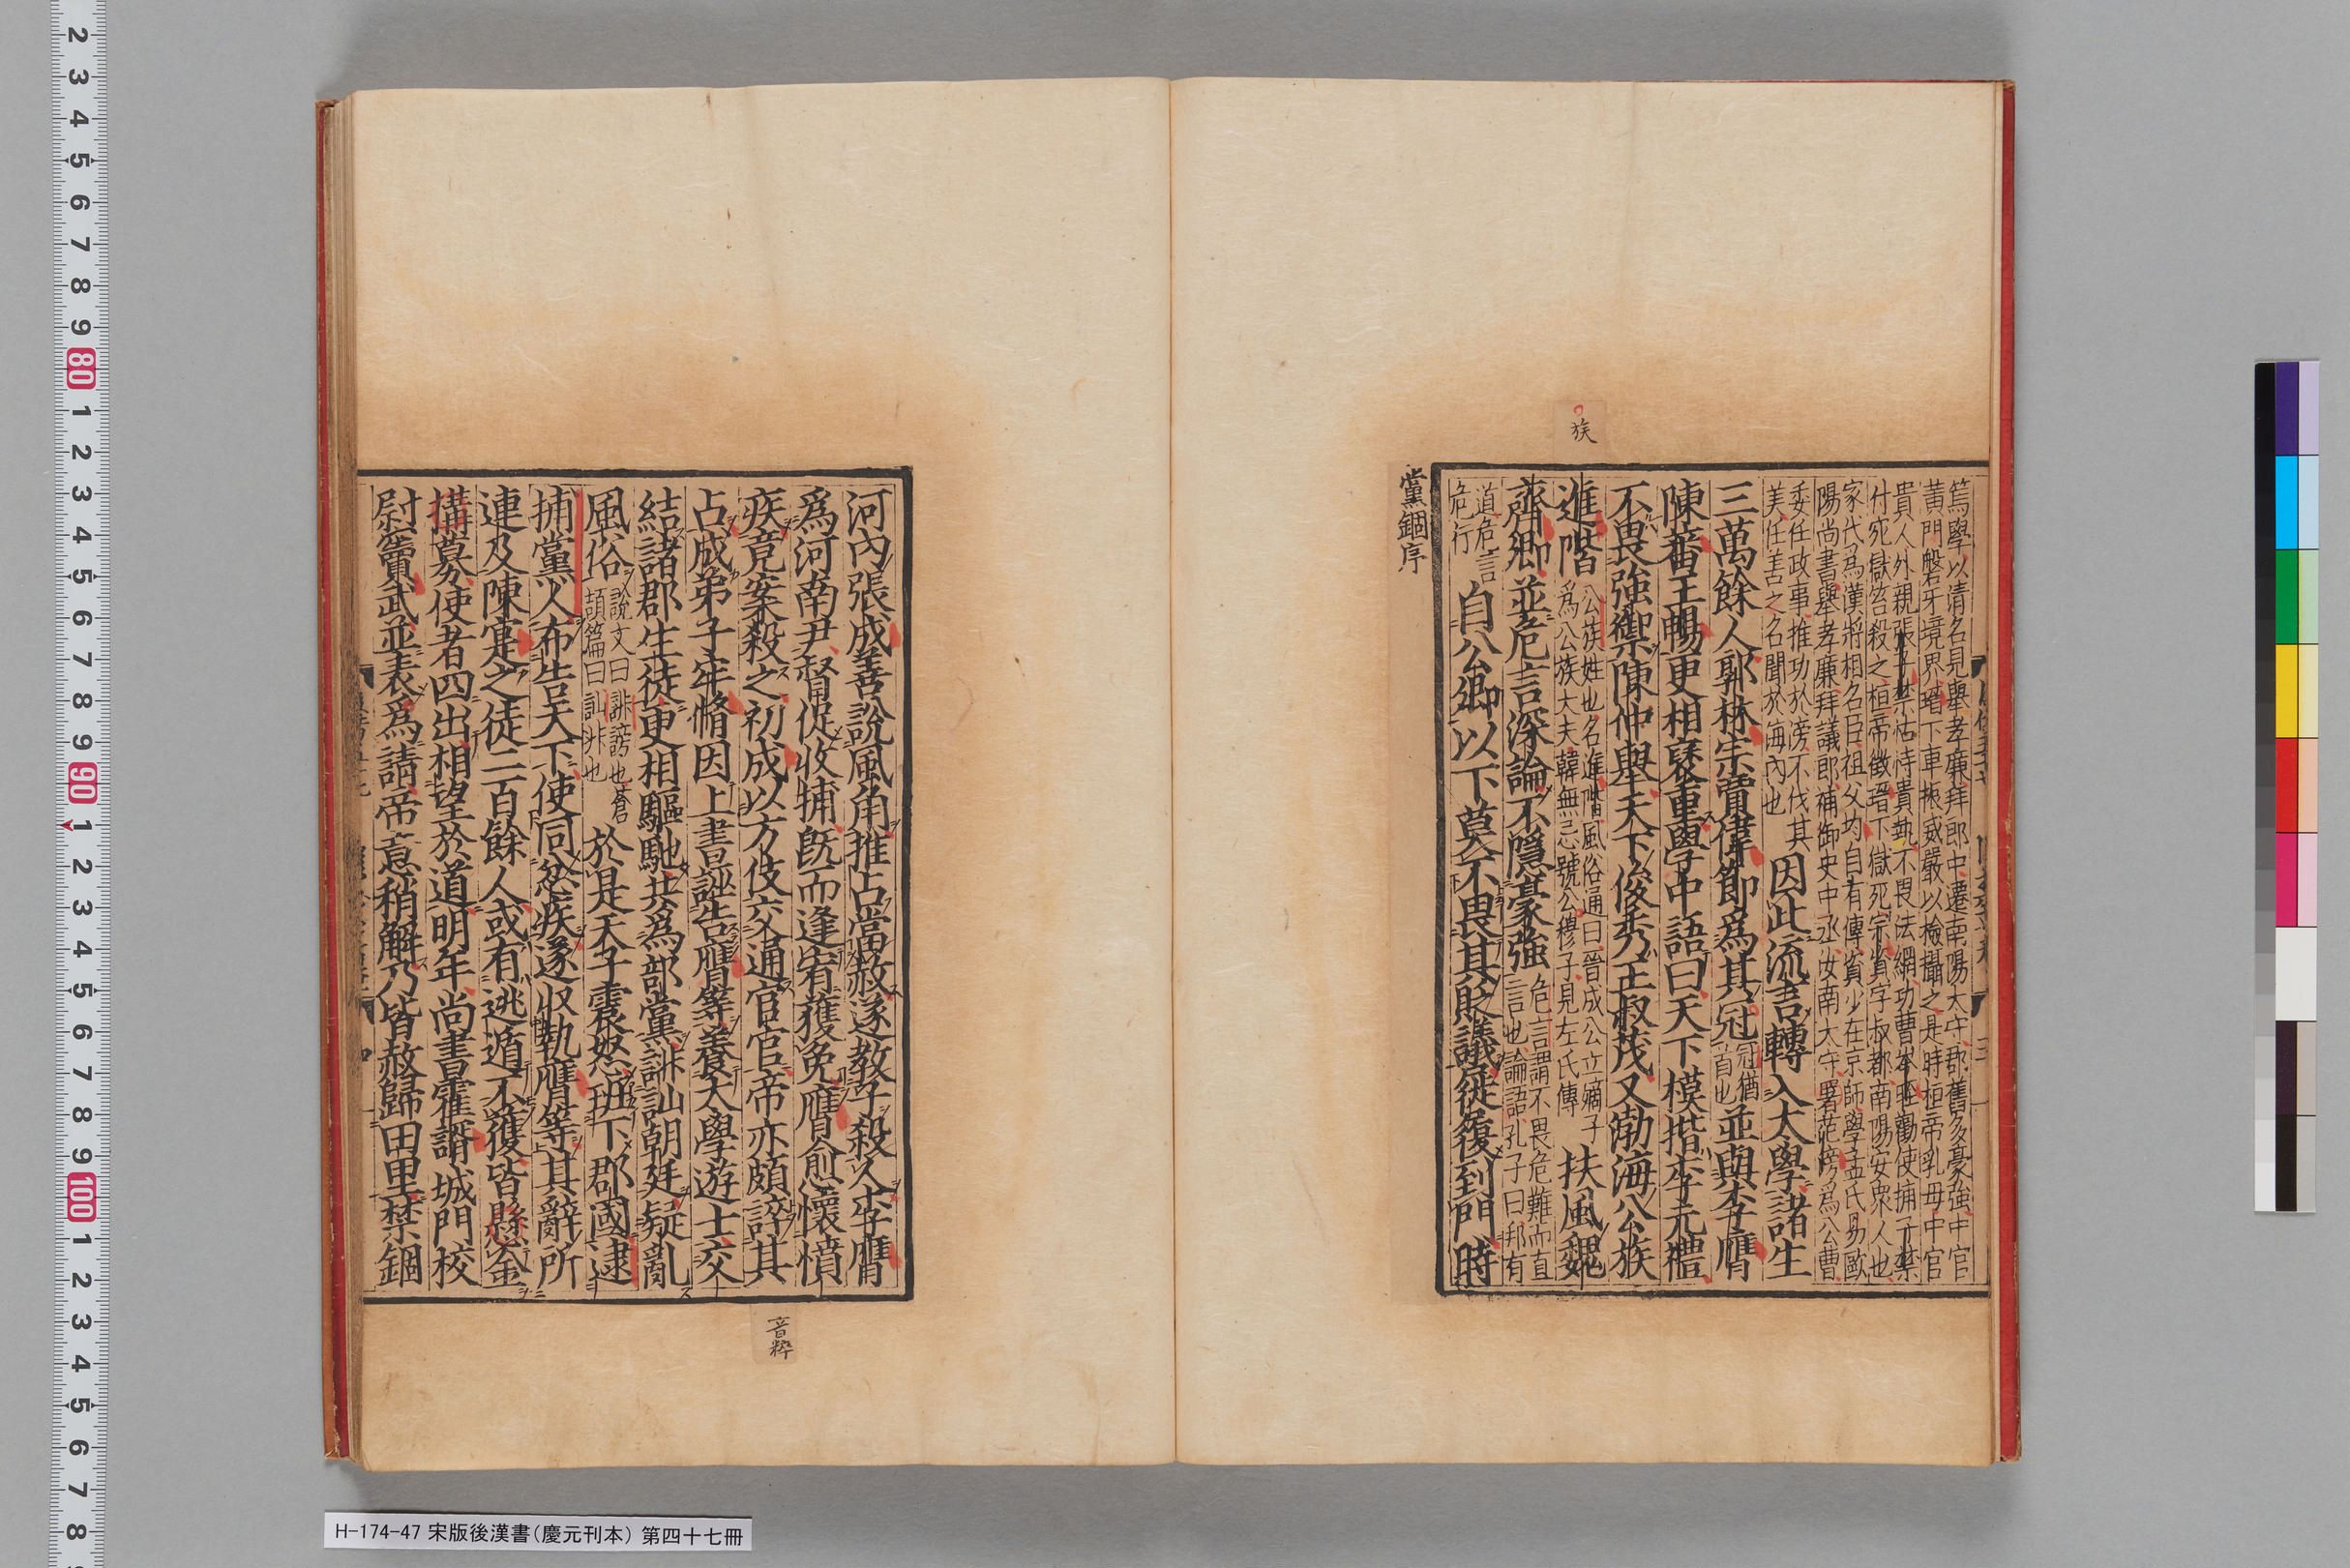 族
篤學以清名見舉孝廉拜郎中遷南陽太守郡舊多豪強中官
黃門磐牙境界瑨下車振威嚴以檢攝之是時桓帝乳母中官
貴人外親張子禁怙恃貴埶不畏法網功曹岑晊勸使捕子禁
付宛獄笞殺之桓帝徵瑨下獄死宗資字叔都南陽安衆人也
家代爲漢將相名臣祖父均自有傳資少在京師學孟氏易歐
陽尚書舉孝廉拜議郎補御史中丞汝南太守署范滂爲公曹
委任政事推功於滂不伐其
美任善之名聞於海內也
因此流言轉入太學諸生
三萬餘人郭林宗賈偉節爲其冠
冠猶
首也
並與李膺
陳蕃王暢更相襃重學中語曰天下模揩李元禮
不畏強禦陳仲舉天下俊秀王叔茂又渤海公族
進階
公族姓也名進階風俗通曰晉成公立嫡子
爲公族大夫韓無忌號公穆子見左氏傳
扶風魏
齊卿並危言深論不隱豪強
危言謂不畏危難而直
言也論語孔子曰邦有
道危言
危行
自公卿以下莫不畏其貶議屣履到門時
黨錮序
河內張成善說風角推占當赦遂教子殺人李膺
爲河南尹督促收捕既而逢宥獲免膺愈懷憤
疾竟案殺之初成以方伎交通宦官帝亦頗誶其
占成弟子牢脩因上書誣告膺等養太學遊士交
結諸郡生徒更相驅馳共爲部黨誹訕朝廷疑亂
風俗
說文曰誹謗也蒼
頡篇曰訕非也
於是天子震怒班下郡國逮
捕黨人布告天下使同忿疾遂收執膺等其辭所
連及陳寔之徒二百餘人或有逃遁不獲皆懸金
購募使者四出相望於道明年尚書霍諝城門校
尉竇武並表爲請帝意稍解乃皆赦歸田里禁錮
音粹
H-174-47 宋版後漢書（慶元刊本） 第四十七冊